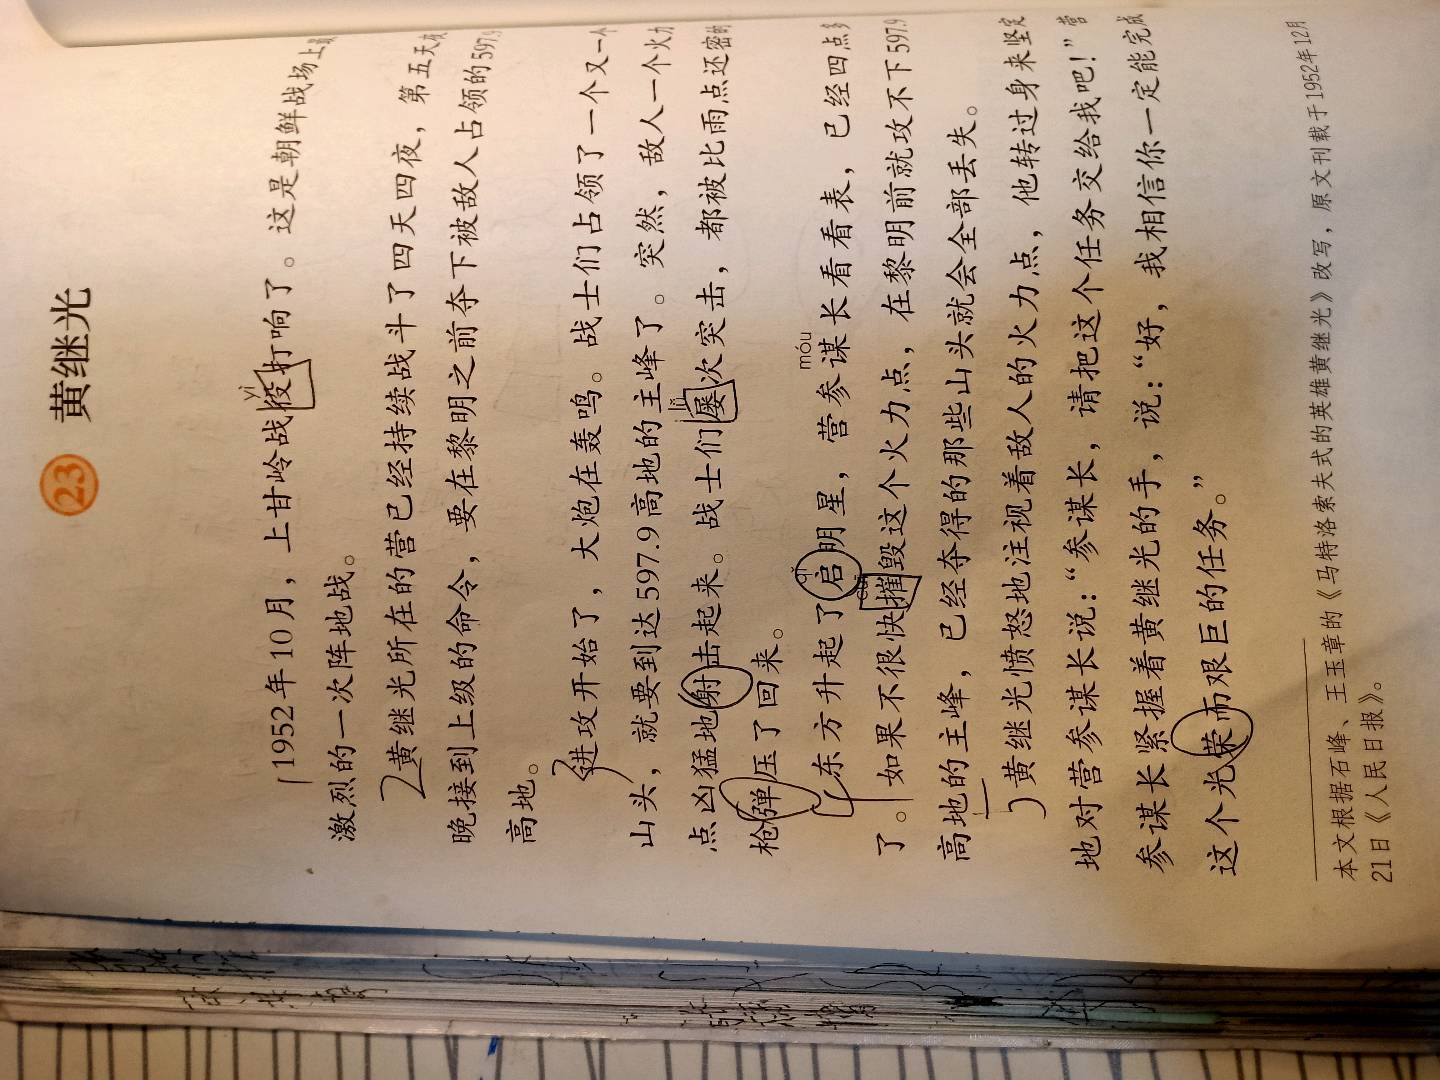 23 黄继光
1952年10月，上甘岭战役打响了。这是朝鲜战场上最
yì
激烈的一次阵地战。
2 黄继光所在的营已经持续战斗了四天四夜，第五天夜
晚接到上级的命令，要在黎明之前夺下被敌人占领的597.9
高地。
3 进攻开始了，大炮在轰鸣。战士们占领了一个又一个
山头，就要到达597.9高地的主峰了。突然，敌人一个火力
点凶猛地射击起来。战士们屡次突击，都被比雨点还密的
lǚ
枪弹压了回来。
móu
qǐ
4 东方升起了启明星，营参谋长看看表，已经四点多
了。如果不很快摧毁这个火力点，在黎明前就攻不下597.9
cuī
高地的主峰，已经夺得的那些山头就会全部丢失。
5 黄继光愤怒地注视着敌人的火力点，他转过身来坚定
地对营参谋长说：“参谋长，请把这个任务交给我吧！”营
参谋长紧握着黄继光的手，说：“好，我相信你一定能完成
这个光荣而艰巨的任务。”
本文根据石峰、王玉章的《马特洛索夫式的英雄黄继光》改写，原文刊载于1952年12月
21日《人民日报》。